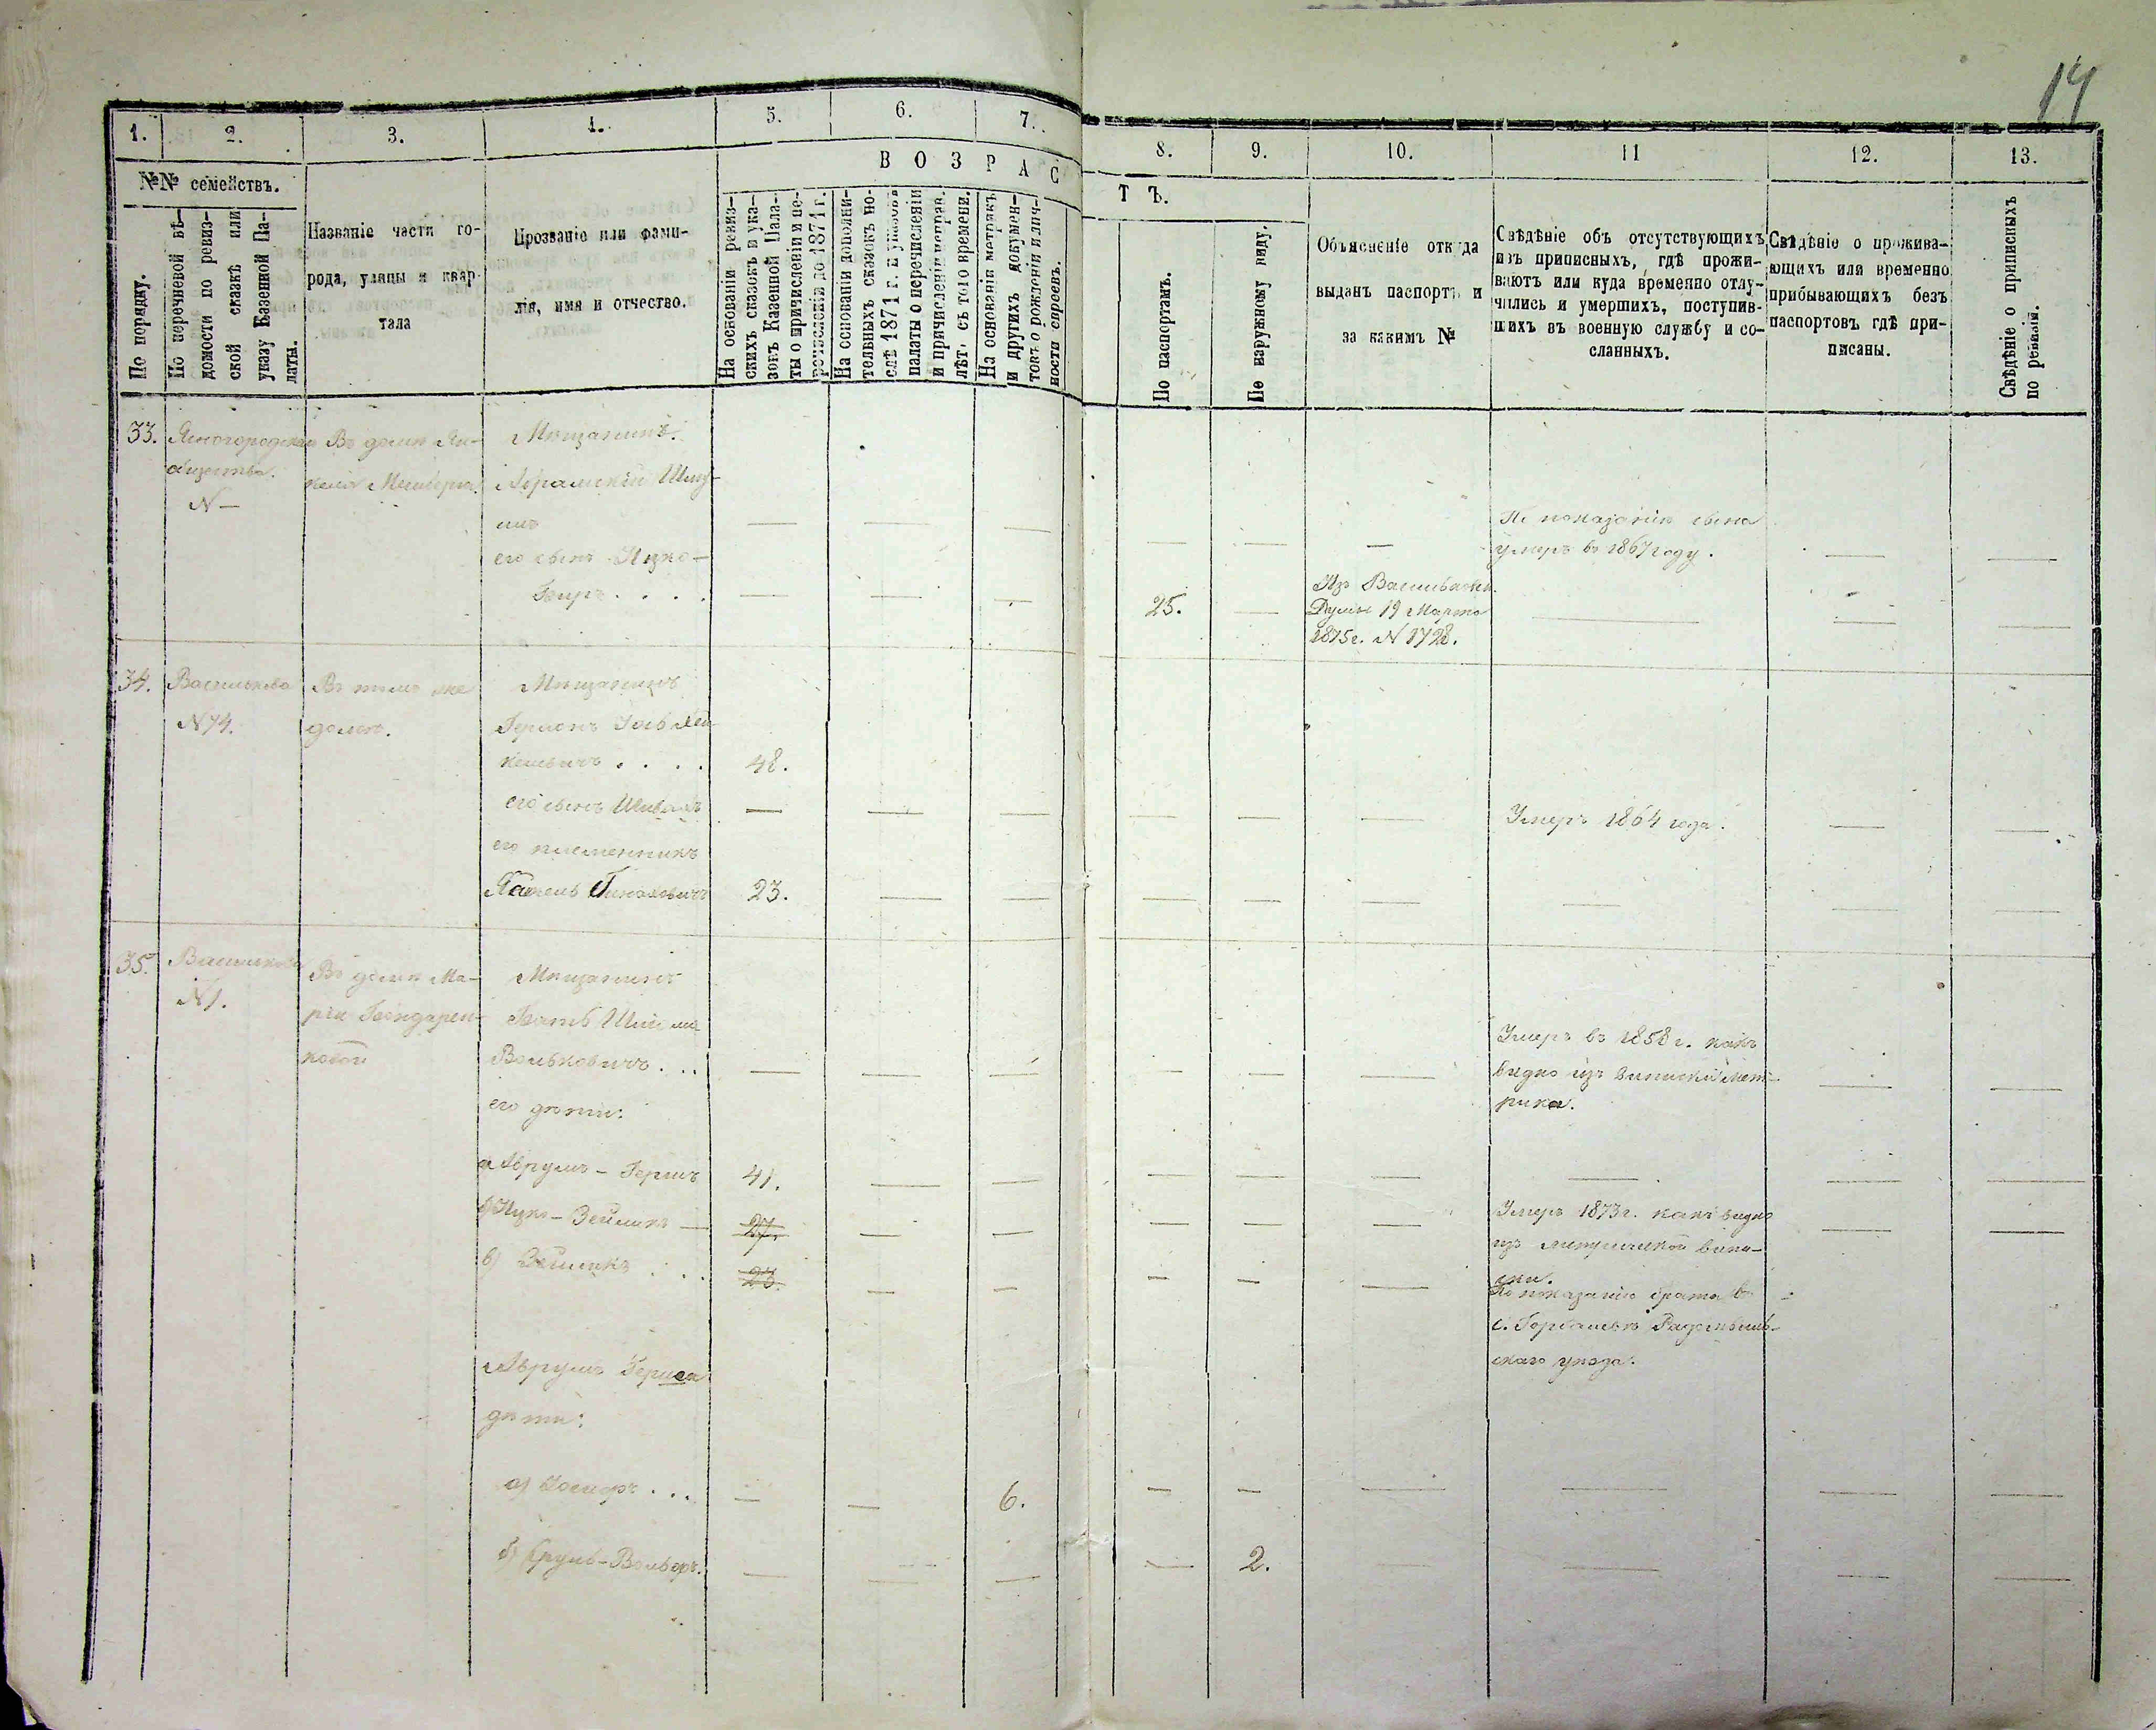 14
1. 2. 3. 4. 5. 6. 7. 8. 9. 10. 11 12. 13.
№№ семействъ.
В О З Р А С Т Ъ.
По порядку.
По перечневой вѣ-
домости по ревиз-
ской сказкѣ или
указу Казенной Па-
латы.
Названіе части го-
рода, улицы и квар-
тала
Прозваніе или фами-
лія, имя и отчество.
На основаніи ревиз-
скихъ сказокъ и ука-
зовъ Казенной Пала-
ты о причисленіи и пе-
речисленіи до 1871 г.
На основаніи дополни-
тельныхъ сказокъ по-
слѣ 1871 г. и указовъ
палаты о перечисленіи
и причисленіи неправ.
лѣтъ съ того времени.
На основаніи метрикъ
и другихъ докумен-
товъ о рожденіи и лич-
ности евреевъ.
По паспортамъ.
По наружному виду.
Объясненіе откуда
выданъ паспортъ и
за какимъ №
Свѣдѣніе объ отсутствующихъ
изъ приписныхъ, гдѣ прожи-
ваютъ или куда временно отлу-
чились и умершихъ, поступив-
шихъ въ военную службу и со-
сланныхъ.
Свѣдѣніе о прожива-
ющихъ или временно
прибывающихъ безъ
паспортовъ гдѣ при-
писаны.
Свѣдѣніе о приписныхъ
по ревизіи.
33. Ясногородскаго Въ домѣ Ян- Мѣщанинъ.
общества. келя
N — Абрамскій Шму-
илъ — — — — — — По показанію сына
умеръ въ 1867 году. — —
его сынъ Ицко-
Беръ . . . . — — — 25. — Изъ Васильковск.
Думы 19 Марта
1875 г. N 1728. — — —
34. Василькова Въ томъ же Мѣщанинъ
N 74. домѣ. Іось
. . . . 48.
его сынъ — — — — — — Умеръ 1864 года. — —
его племянникъ
23. — — — — — — — —
35. Василькова Въ домѣ Ма- Мѣщанинъ
N 1. ріи Бондарен-
ковой
Вольковичъ . . . — — — — — — Умеръ въ 1858 г. какъ
видно изъ выписки мет-
рика. — —
его дѣти:
а) Аврумъ-Гершъ 41. — — — — — — — —
б) Ицко-Зейликъ — 27. — — — — — Умеръ 1873 г. какъ видно
изъ метрической выпи-
ски. — —
в) Зейликъ . . . 23. — — — — — По показанію брата въ
с. Горбашевъ Радомысль-
скаго уѣзда.
Аврумъ Герша
дѣти:
а) Іосифъ . . . — — 6. — — — — — —
б) Сруль-Вольфъ. — — — — 2. — — — —